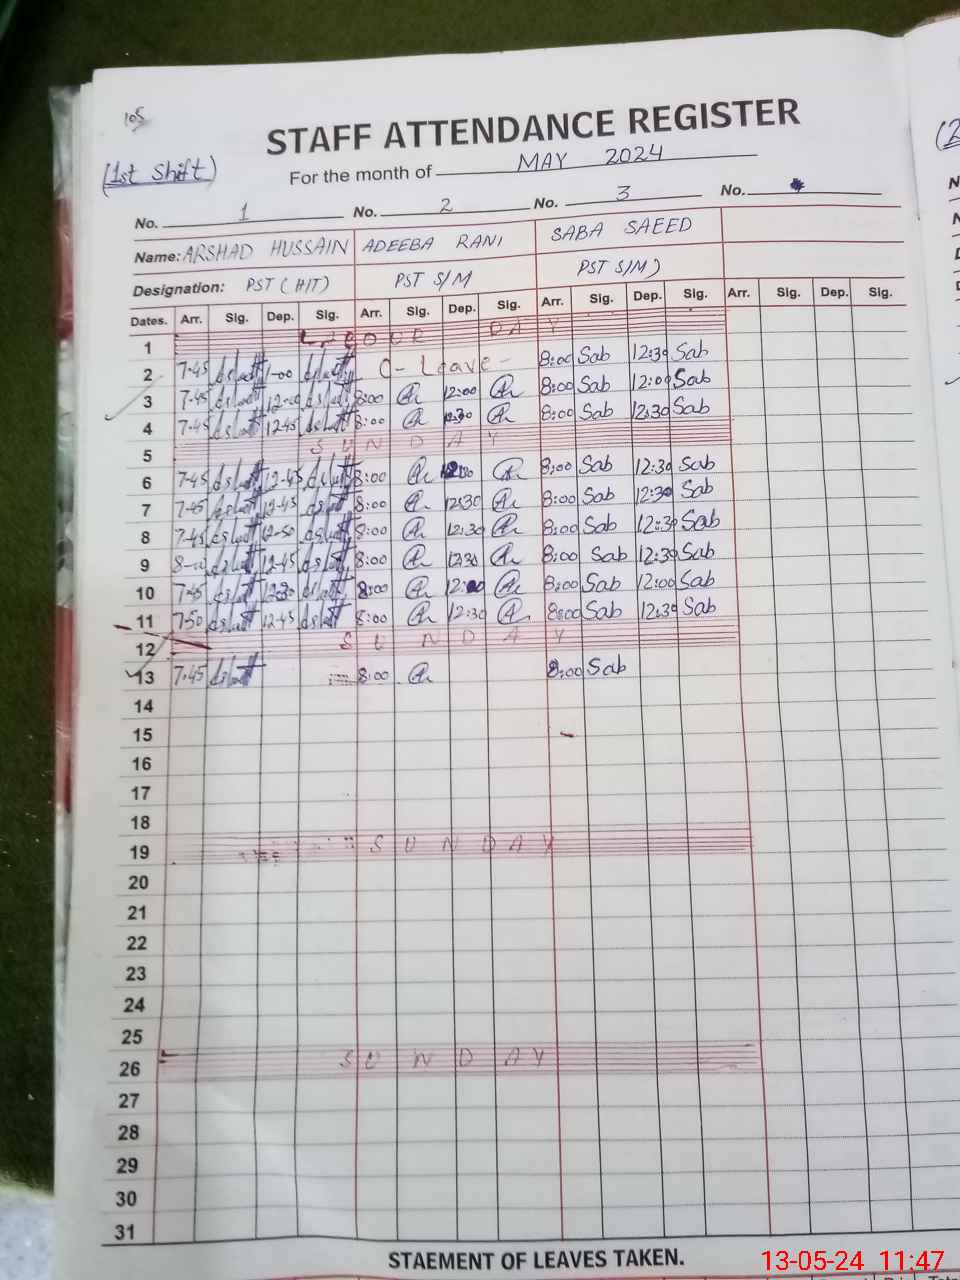 105
STAFF ATTENDANCE REGISTER
(1st Shift)
For the month of MAY 2024
No. 1 No. 2 No. 3 No.
Name: ARSHAD HUSSAIN ADEEBA RANI SABA SAEED
Designation: PST (HIT) PST S/M PST S/M)
Dates. Arr. Sig. Dep. Sig. Arr. Sig. Dep. Sig. Arr. Sig. Dep. Sig. Arr. Sig. Dep. Sig.
1 LABOUR DAY
2 7-45 1-00 C- Leave - 8:00 Sab 12:30 Sab
3 7-45 12-00 8:00 12:00 8:00 Sab 12:00 Sab
4 7-45 12-45 8:00 12:30 8:00 Sab 12:30 Sab
5 SUNDAY
6 7-45 12-45 8:00 8:00 Sab 12:30 Sab
7 7-45 12-45 8:00 12:30 8:00 Sab 12:30 Sab
8 7-45 12-50 8:00 12:30 8:00 Sab 12:30 Sab
9 8-00 12-45 8:00 12:30 8:00 Sab 12:30 Sab
10 7-45 8:00 12:00 8:00 Sab 12:00 Sab
11 7-50 12-45 8:00 12:30 8:00 Sab 12:30 Sab
12 SUNDAY
13 7-45 8:00 8:00 Sab
14
15
16
17
18
19 SUNDAY
20
21
22
23
24
25
26 SUNDAY
27
28
29
30
31
STAEMENT OF LEAVES TAKEN.
13-05-24 11:47